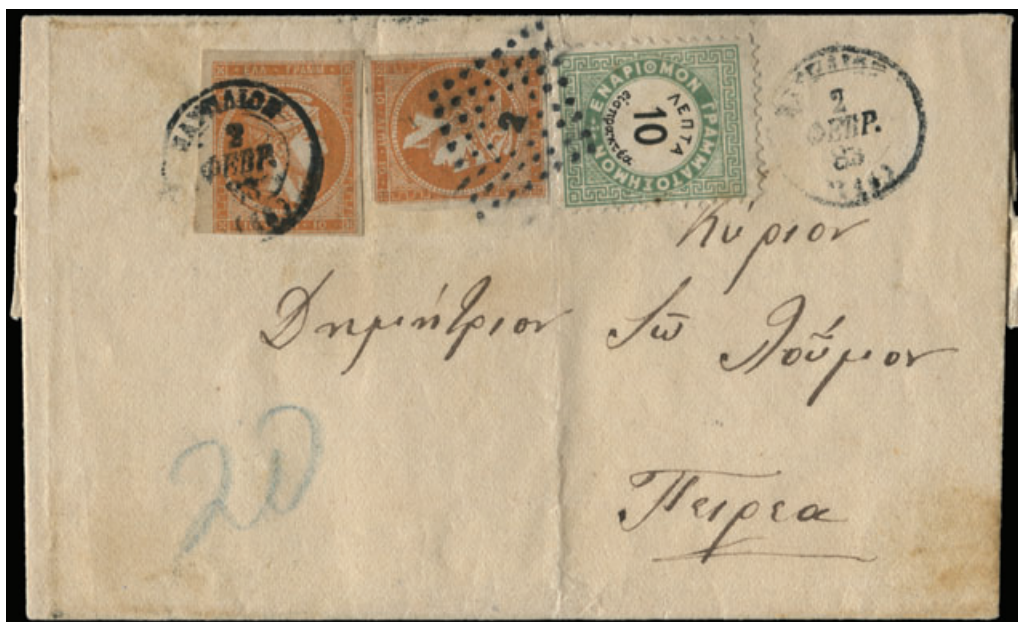 ΕΛΛ ΓΡΑΜΜ
10
2
ΦΕΒΡ.
83
2
ΕΝΑΡΙΘΜΟΝ ΓΡΑΜΜΑΤΟΣΗΜΟΝ
ΛΕΠΤΑ
10
εισπρακτέα
2
ΦΕΒΡ.
83
Κύριον
Δημήτριον
Πειρεα
20